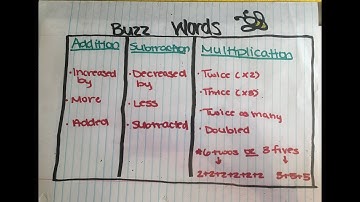 Buzz Words
Addition
• Increased by
• More
• Added
Subtraction
• Decreased by
• Less
• Subtracted
Multiplication
• Twice (x2)
• Thrice (x3)
• Twice as many
• Doubled
*6 twos or 3 fives
2+2+2+2+2+2 5+5+5